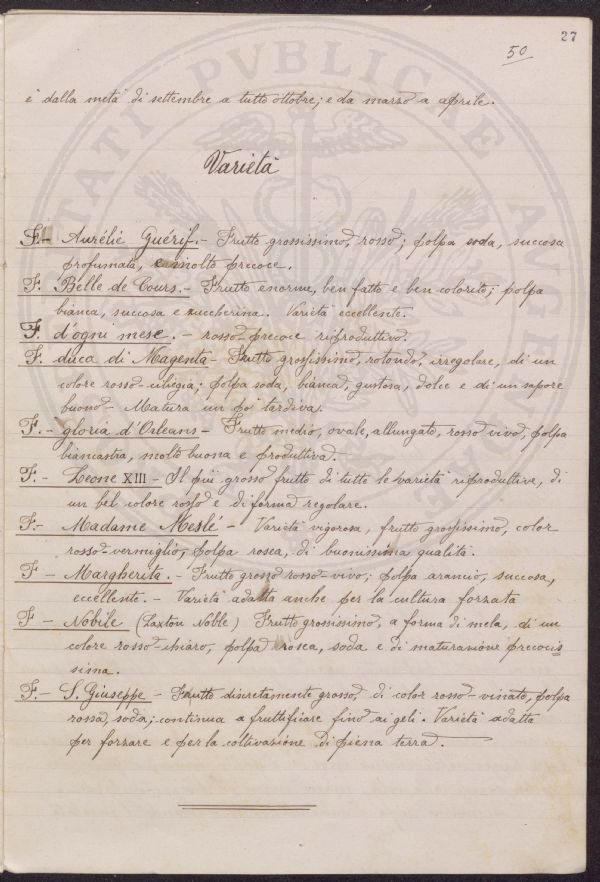 27
50
è dalla metà di settembre a tutto ottobre; e da marzo a aprile.
Varietà
F.- Aurélie Guérif.- Frutto grossissimo, rosso; polpa soda, succosa
profumata, e molto precoce.
F. Belle de Cours.- Frutto enorme, ben fatto e ben colorito; polpa
bianca, succosa e zuccherina. Varietà eccellente.
F. d'ogni mese.- rosso precoce riproduttivo.
F. duca di Magenta- Frutto grossissimo, rotondo, irregolare, di un
colore rosso-ciliegia; polpa soda, bianca, gustosa, dolce e di un sapore
buono- Matura un pò tardiva.
F.- gloria d'Orleans- Frutto medio, ovale, allungato, rosso vivo, polpa
biancastra, molto buona e produttiva.-
F.- Leone XIII- Il più grosso frutto di tutte le varietà riproduttive, di
un bel colore rosso e di forma regolare.
F- Madame Meslé- Varietà vigorosa, frutto grossissimo, color
rosso-vermiglio, polpa rosea, di buonissima qualità.
F- Margherita.- Frutto grosso rosso-vivo; polpa arancio, succosa,
eccellente.- Varietà adatta anche per la cultura forzata
F- Nobile (Laxton Noble) Frutto grossissimo, a forma di mela, di un
colore rosso-chiaro, polpa rosea, soda e di maturazione precocis
sima.
F.- S. Giuseppe- Frutto discretamente grosso, di color rosso-vinato, polpa
rossa, soda; continua a fruttifiare fino ai geli. Varietà adatta
per forzare e per la coltivazione di piena terra.
PVBLICAE